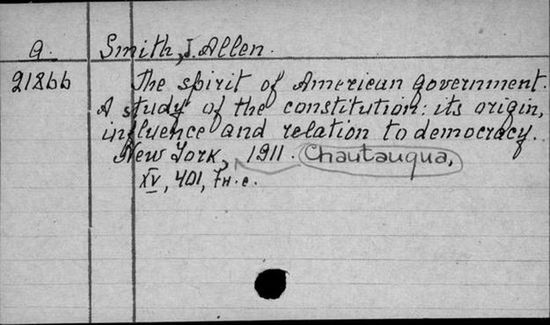 a. Smith, J. Allen.
21266 The spirit of American government.
A study of the constitution: its origin,
influence and relation to democracy.
New York, 1911. Chautauqua,
XV, 401, 7 n.c.